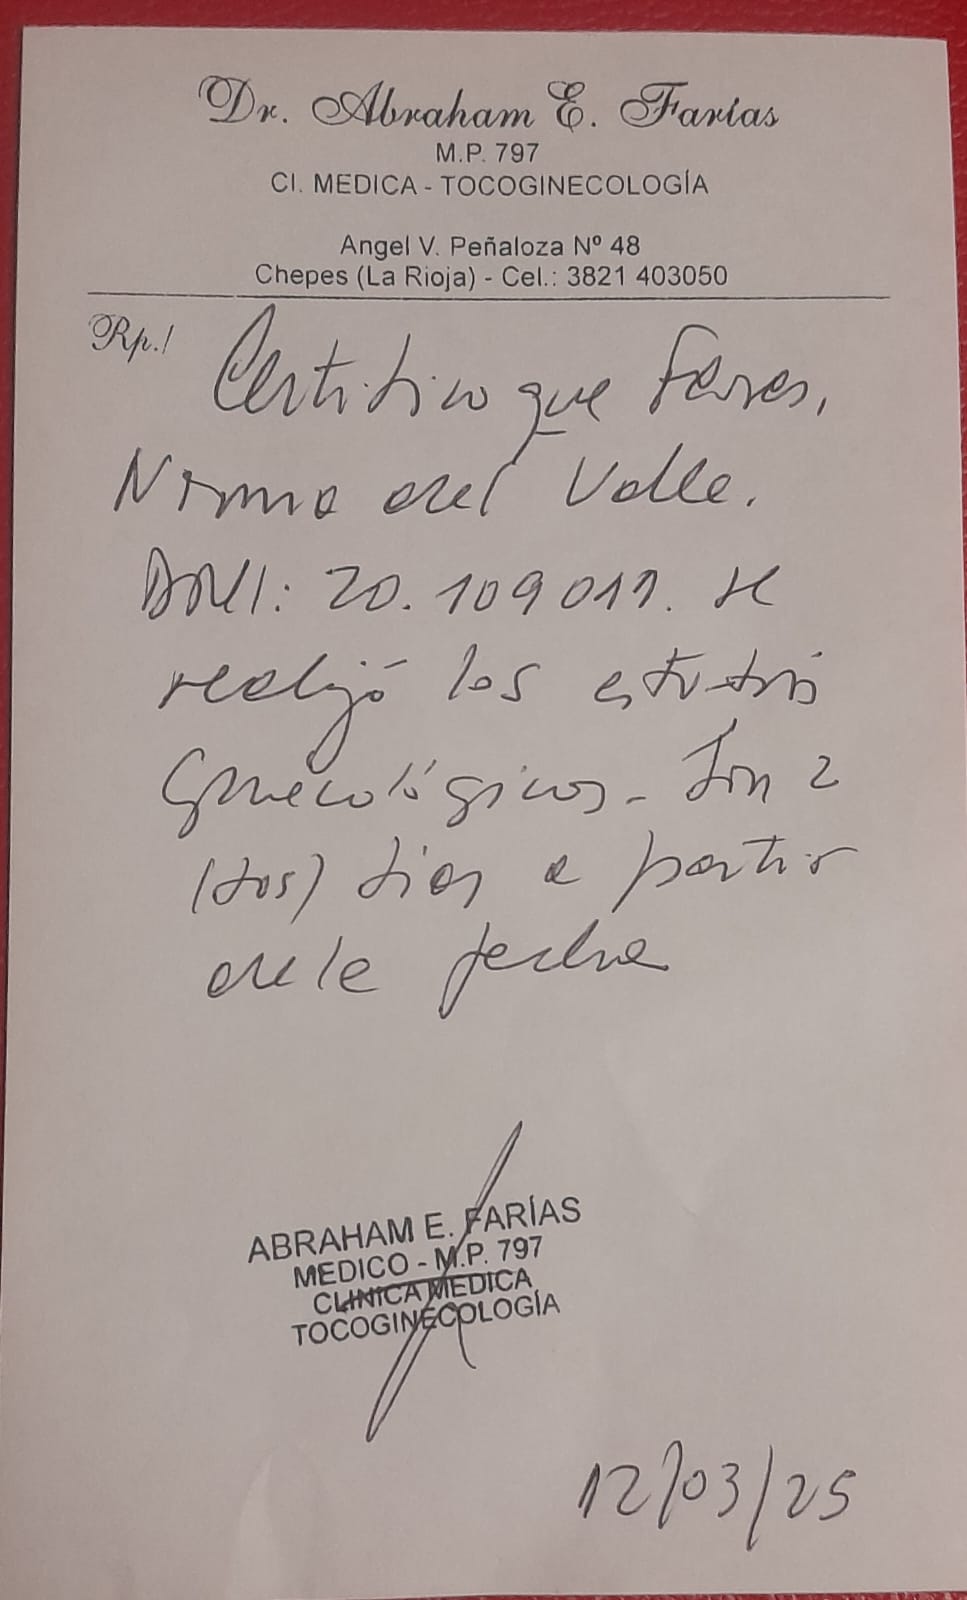 Dr. Abraham E. Farías
M.P. 797
CI. MEDICA - TOCOGINECOLOGÍA
Angel V. Peñaloza Nº 48
Chepes (La Rioja) - Cel.: 3821 403050
Rp./ Certifico que
del Valle.
DNI: 20.109011. se
realizó los estudios
Ginecológicos - Son 2
(dos) dias a partir
de la fecha
ABRAHAM E. FARÍAS
MEDICO - M.P. 797
CLINICA MEDICA
TOCOGINECOLOGÍA
12/03/25